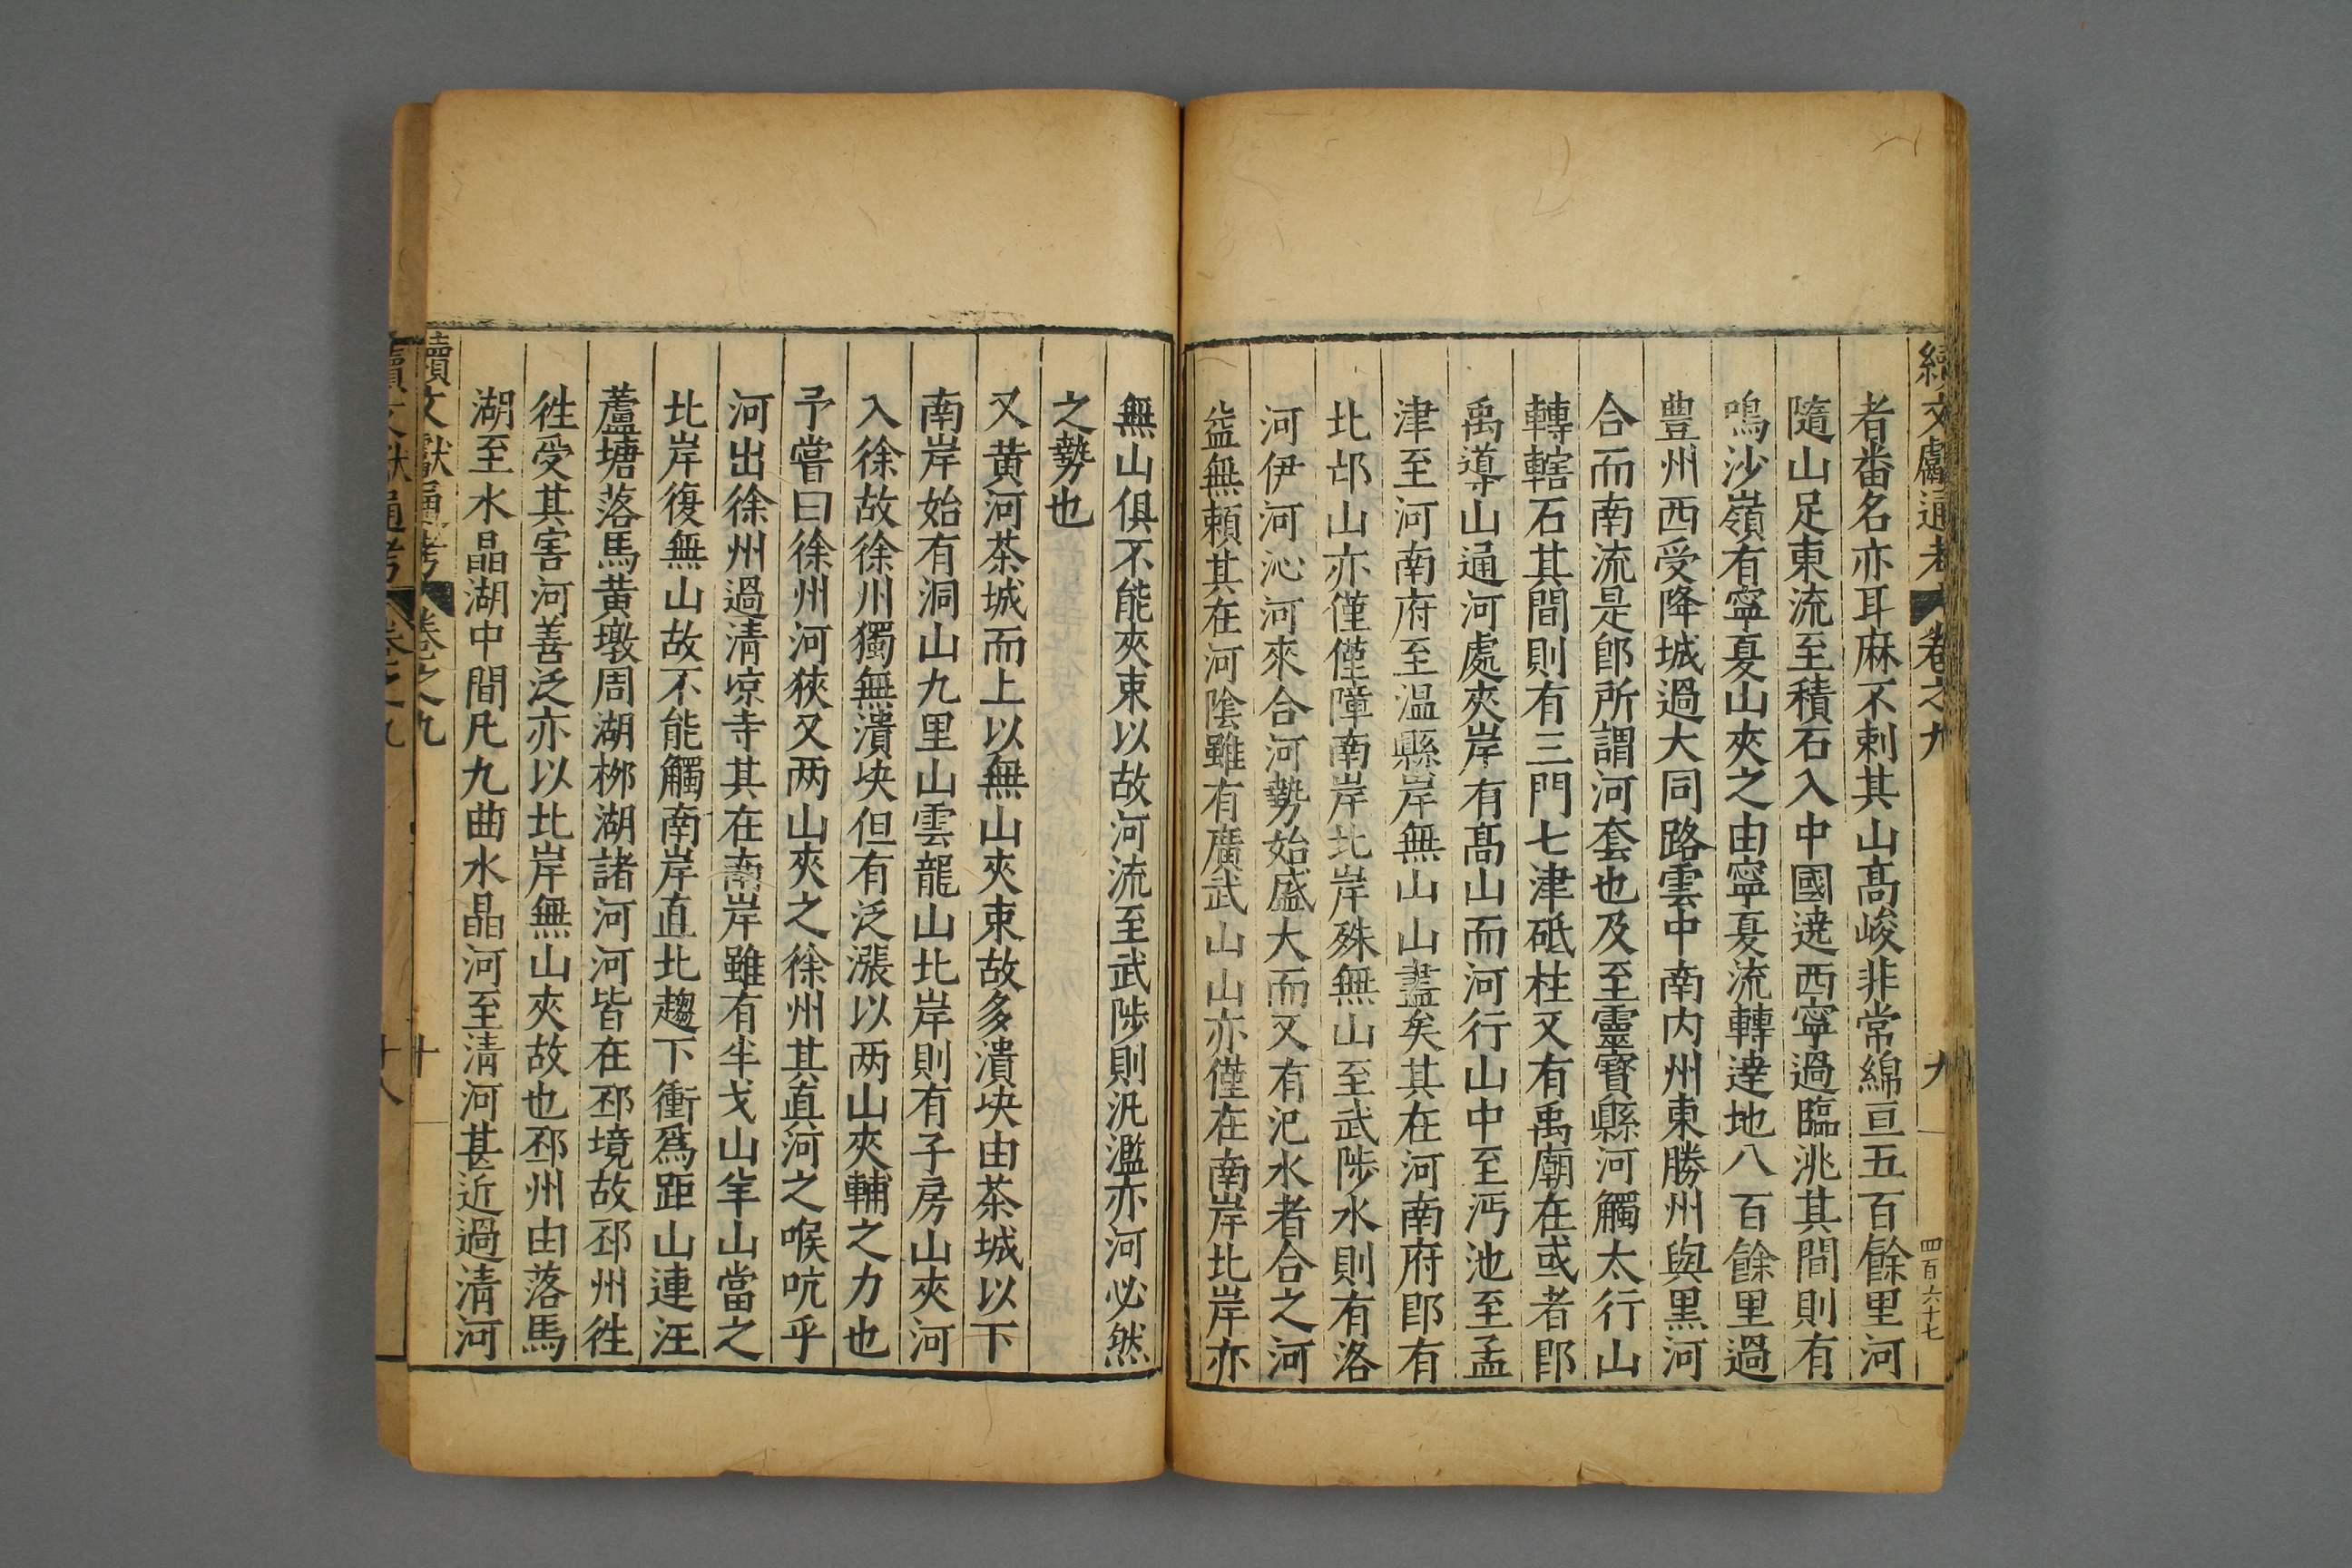 續文獻通考 卷之九 九 四百六十七
者番名亦耳麻不剌其山髙峻非常綿亘五百餘里河
隨山足東流至積石入中國遶西寧過臨洮其間則有
鳴沙嶺有寧夏山夾之由寧夏流轉達地八百餘里過
豊州西受降城過大同路雲中南内州東勝州與黒河
合而南流是卽所謂河套也及至靈寳縣河觸太行山
轉轄石其間則有三門七津砥柱又有禹廟在或者卽
禹導山通河處夾岸有髙山而河行山中至沔池至孟
津至河南府至温縣岸無山山盡矣其在河南府卽有
北邙山亦僅僅障南岸北岸殊無山至武陟水則有洛
河伊河沁河來合河勢始盛大而又有汜水者合之河
益無頼其在河隂雖有廣武山山亦僅在南岸北岸亦
無山俱不能夾束以故河流至武陟則汎濫亦河必然
之勢也
又黄河茶城而上以無山夾束故多潰决由茶城以下
南岸始有洞山九里山雲龍山北岸則有子房山夾河
入徐故徐州獨無潰决但有泛漲以两山夾輔之力也
予嘗曰徐州河狹又两山夾之徐州其真河之喉吭乎
河出徐州過清凉寺其在南岸雖有半戈山羊山當之
北岸復無山故不能觸南岸直北趨下衝爲距山連汪
蘆塘落馬黄墩周湖栁湖諸河河皆在邳境故邳州徃
徃受其害河善泛亦以北岸無山夾故也邳州由落馬
湖至水晶湖中間凡九曲水晶河至清河甚近過清河
續文獻通考 卷之九 十
續文獻通考 卷之九 十八